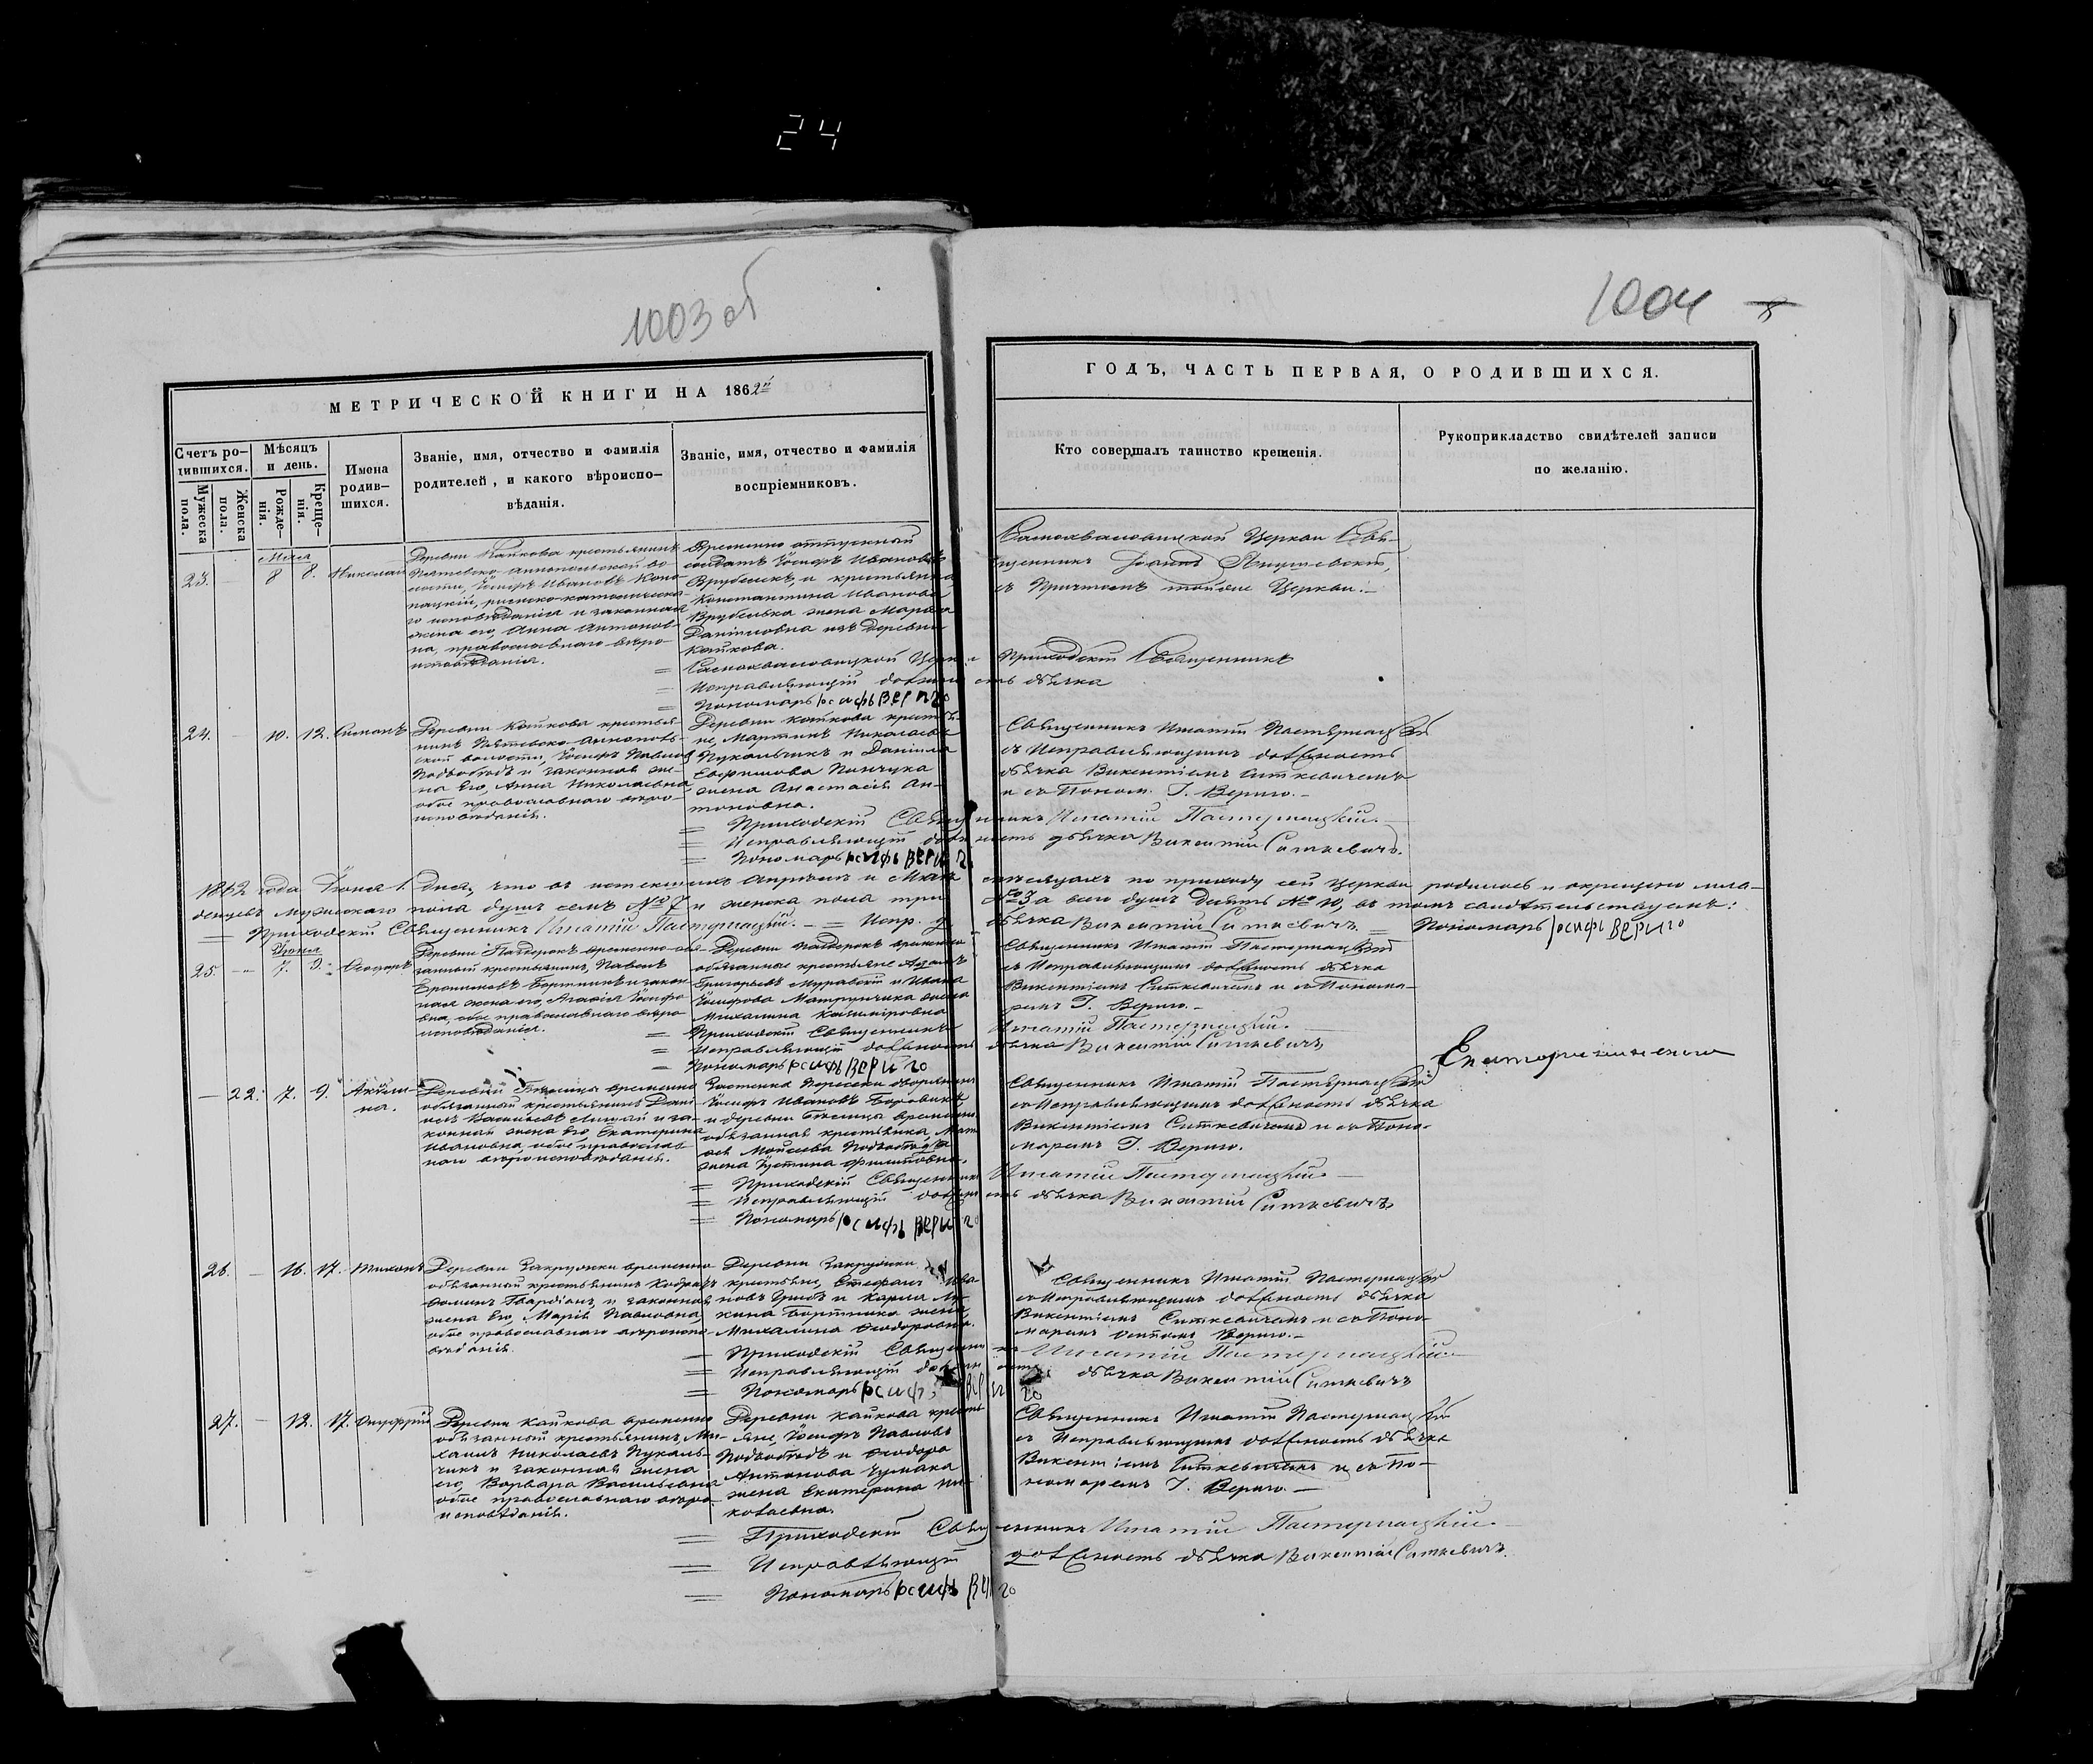 24
1003 об
1004
МЕТРИЧЕСКОЙ КНИГИ НА 1862й
Счетъ ро-
дившихся.
Мужеска пола.
Женска пола.
Мѣсяцъ
и день.
Рожде-
нія.
Креще-
нія.
Имена
родив-
шихся.
Званіе, имя, отчество и фамилія
родителей, и какого вѣроиспо-
вѣданія.
Званіе, имя, отчество и фамилія
воспріемниковъ.
ГОДЪ, ЧАСТЬ ПЕРВАЯ, О РОДИВШИХСЯ.
Кто совершалъ таинство крещенія.
Рукоприкладство свидѣтелей записи
по желанію.
Мая
23.
8
8.
Николай
Деревни Кайкова крестьянинъ
Іосифъ Ивановъ
римско-католическа-
го исповѣданія и законная
жена его, Анна Антонов-
на, православнаго вѣро-
исповѣданія.
Временно отпускный
солдатъ Іосифъ Ивановъ
Врубелекъ, и крестьянина
Константина Иванова
Врубелька жена Марѳа
Даніиловна изъ деревни
Кайкова.
Церкви Свя-
щенникъ Іоаннъ
съ Причтомъ тойже Церкви.
Церкви Приходскій Священникъ
Исправляющій должность дьячка
Пономарь Іосифъ Вериго
24.
10.
12.
Симонъ
Деревни Кайкова крестья-
нинъ
волости, Іосифъ Павловъ
и законная же-
на его, Анна Николаевна
обое православнаго вѣро-
исповѣданія.
Деревни Кайкова крестья-
не Мартинъ Николаевъ
Пукальчикъ и Даніила
жена Анастасія Ан-
тоновна.
Священникъ Игнатій Пастернацкій
съ Исправляющимъ должность
дьячка Викентіемъ Ситкевичемъ
и съ Поном. І. Вериго.
Приходскій Священникъ Игнатій Пастернацкій.
Исправляющій должность дьячка Викентій Ситкевичъ.
Пономарь Іосифъ Вериго
1862 года Іюня 1. дня, что въ истекшихъ Апрѣлѣ и Маѣ мѣсяцахъ по приходу сей Церкви родилось и окрещено мла-
денцевъ мужескаго пола душъ семь № 7 и женска пола три № 3 а всего душъ десять № 10, въ томъ свидѣтельствуемъ:
Приходскій Священникъ Игнатій Пастернацкій. Испр. д. дьячка Викентій Ситкевичъ. Пономарь Іосифъ Вериго
Іюня
25.
7.
9.
Ѳеодоръ
временно-обя-
занный крестьянинъ, Павелъ
и закон-
ная жена его, Агаѳія Іосифо-
вна, обое православнаго вѣро-
исповѣданія.
обязанные крестьяне Адамъ
Григорьевъ и Ивана
Іосифова жена
Михалина Казиміровна
Священникъ Игнатій Пастернацкій
съ Исправляющимъ должность дьячка
Викентіемъ Ситкевичемъ и съ Понома-
ремъ І. Вериго.
Приходскій Священникъ Игнатій Пастернацкій.
Исправляющій должность дьячка Викентій Ситкевичъ
Пономарь Іосифъ Вериго
22.
7.
9.
Акили-
на.
временно
обязанный крестьянинъ
и за-
конная жена его, Екатерина
Ивановна, обое православ-
наго вѣроисповѣданія.
дворянинъ
Іосифъ Ивановъ
и деревни
обязаннаго крестьянина
жена Іустина Филиповна.
Священникъ Игнатій Пастернацкій
съ Исправляющимъ должность дьячка
Викентіемъ Ситкевичемъ и съ Поно-
маремъ І. Вериго.
Приходскій Священникъ Игнатій Пастернацкій.
Исправляющій должность дьячка Викентій Ситкевичъ
Пономарь Іосифъ Вериго
26.
16.
17.
Тихонъ
Деревни Закружки временно
обязанный крестьянинъ
и законная
жена его, Марія Павловна,
обое православнаго вѣроиспо-
вѣданія.
Деревни Закружки
крестьяне, Стефанъ Ива-
новъ
жена,
Михалина Ѳеодоровна.
Священникъ Игнатій Пастернацкій
съ Исправляющимъ должность дьячка
Викентіемъ Ситкевичемъ и съ Поно-
маремъ Вериго.
Приходскій Священникъ Игнатій Пастернацкій.
Исправляющій должность дьячка Викентій Ситкевичъ
Пономарь Іосифъ Вериго
27.
12.
17.
Онуфрій
Деревни Кайкова временно
обязанный крестьянинъ, Ми-
хаилъ Николаевъ Пукаль-
чикъ и законная жена
его, Варвара Васильевна
обое православнаго вѣро-
исповѣданія.
Деревни Кайкова кресть-
яне, Іосифъ Павловъ
и Ѳеодора
Антонова Чумака
жена Екатерина Ни-
колаевна.
Священникъ Игнатій Пастернацкій
съ Исправляющимъ должность дьячка
Викентіемъ Ситкевичемъ и съ По-
номаремъ І. Вериго.
Приходскій Священникъ Игнатій Пастернацкій.
Исправляющій должность дьячка Викентій Ситкевичъ.
Пономарь Іосифъ Вериго